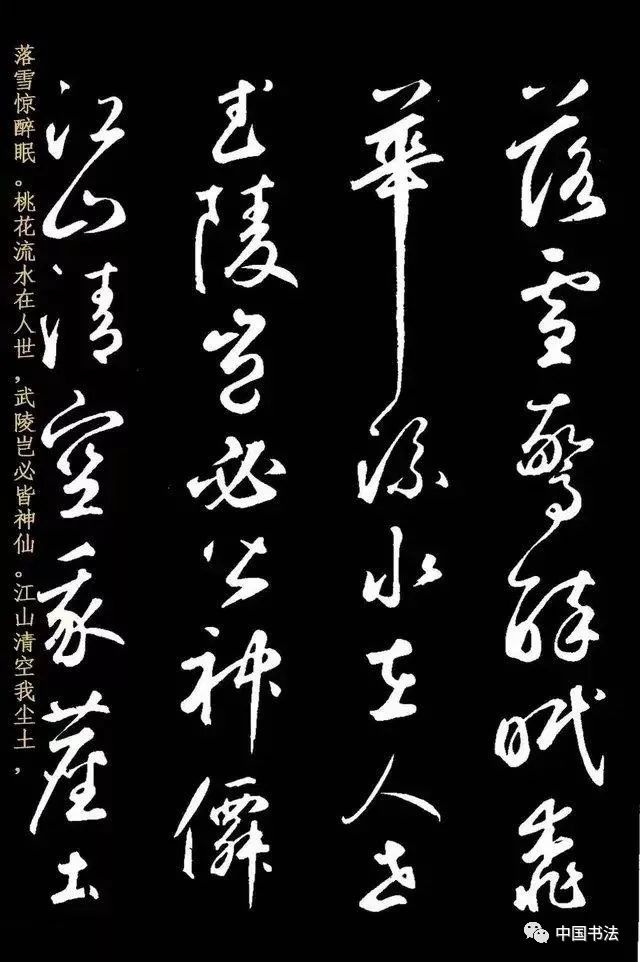 落雪驚醉眠桃
華流水在人世
武陵豈必皆神僊
江山清空我塵土
落雪惊醉眠。桃花流水在人世，武陵岂必皆神仙。江山清空我尘土，
中国书法